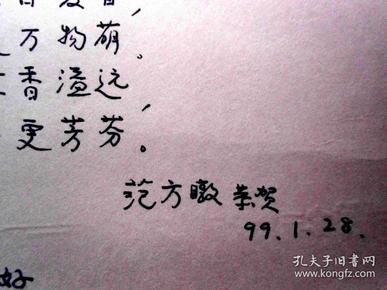 万物萌。
香溢远
更芳芬。
范方暾 恭贺
99.1.28.
好
孔夫子旧书网
www.kongfz.com